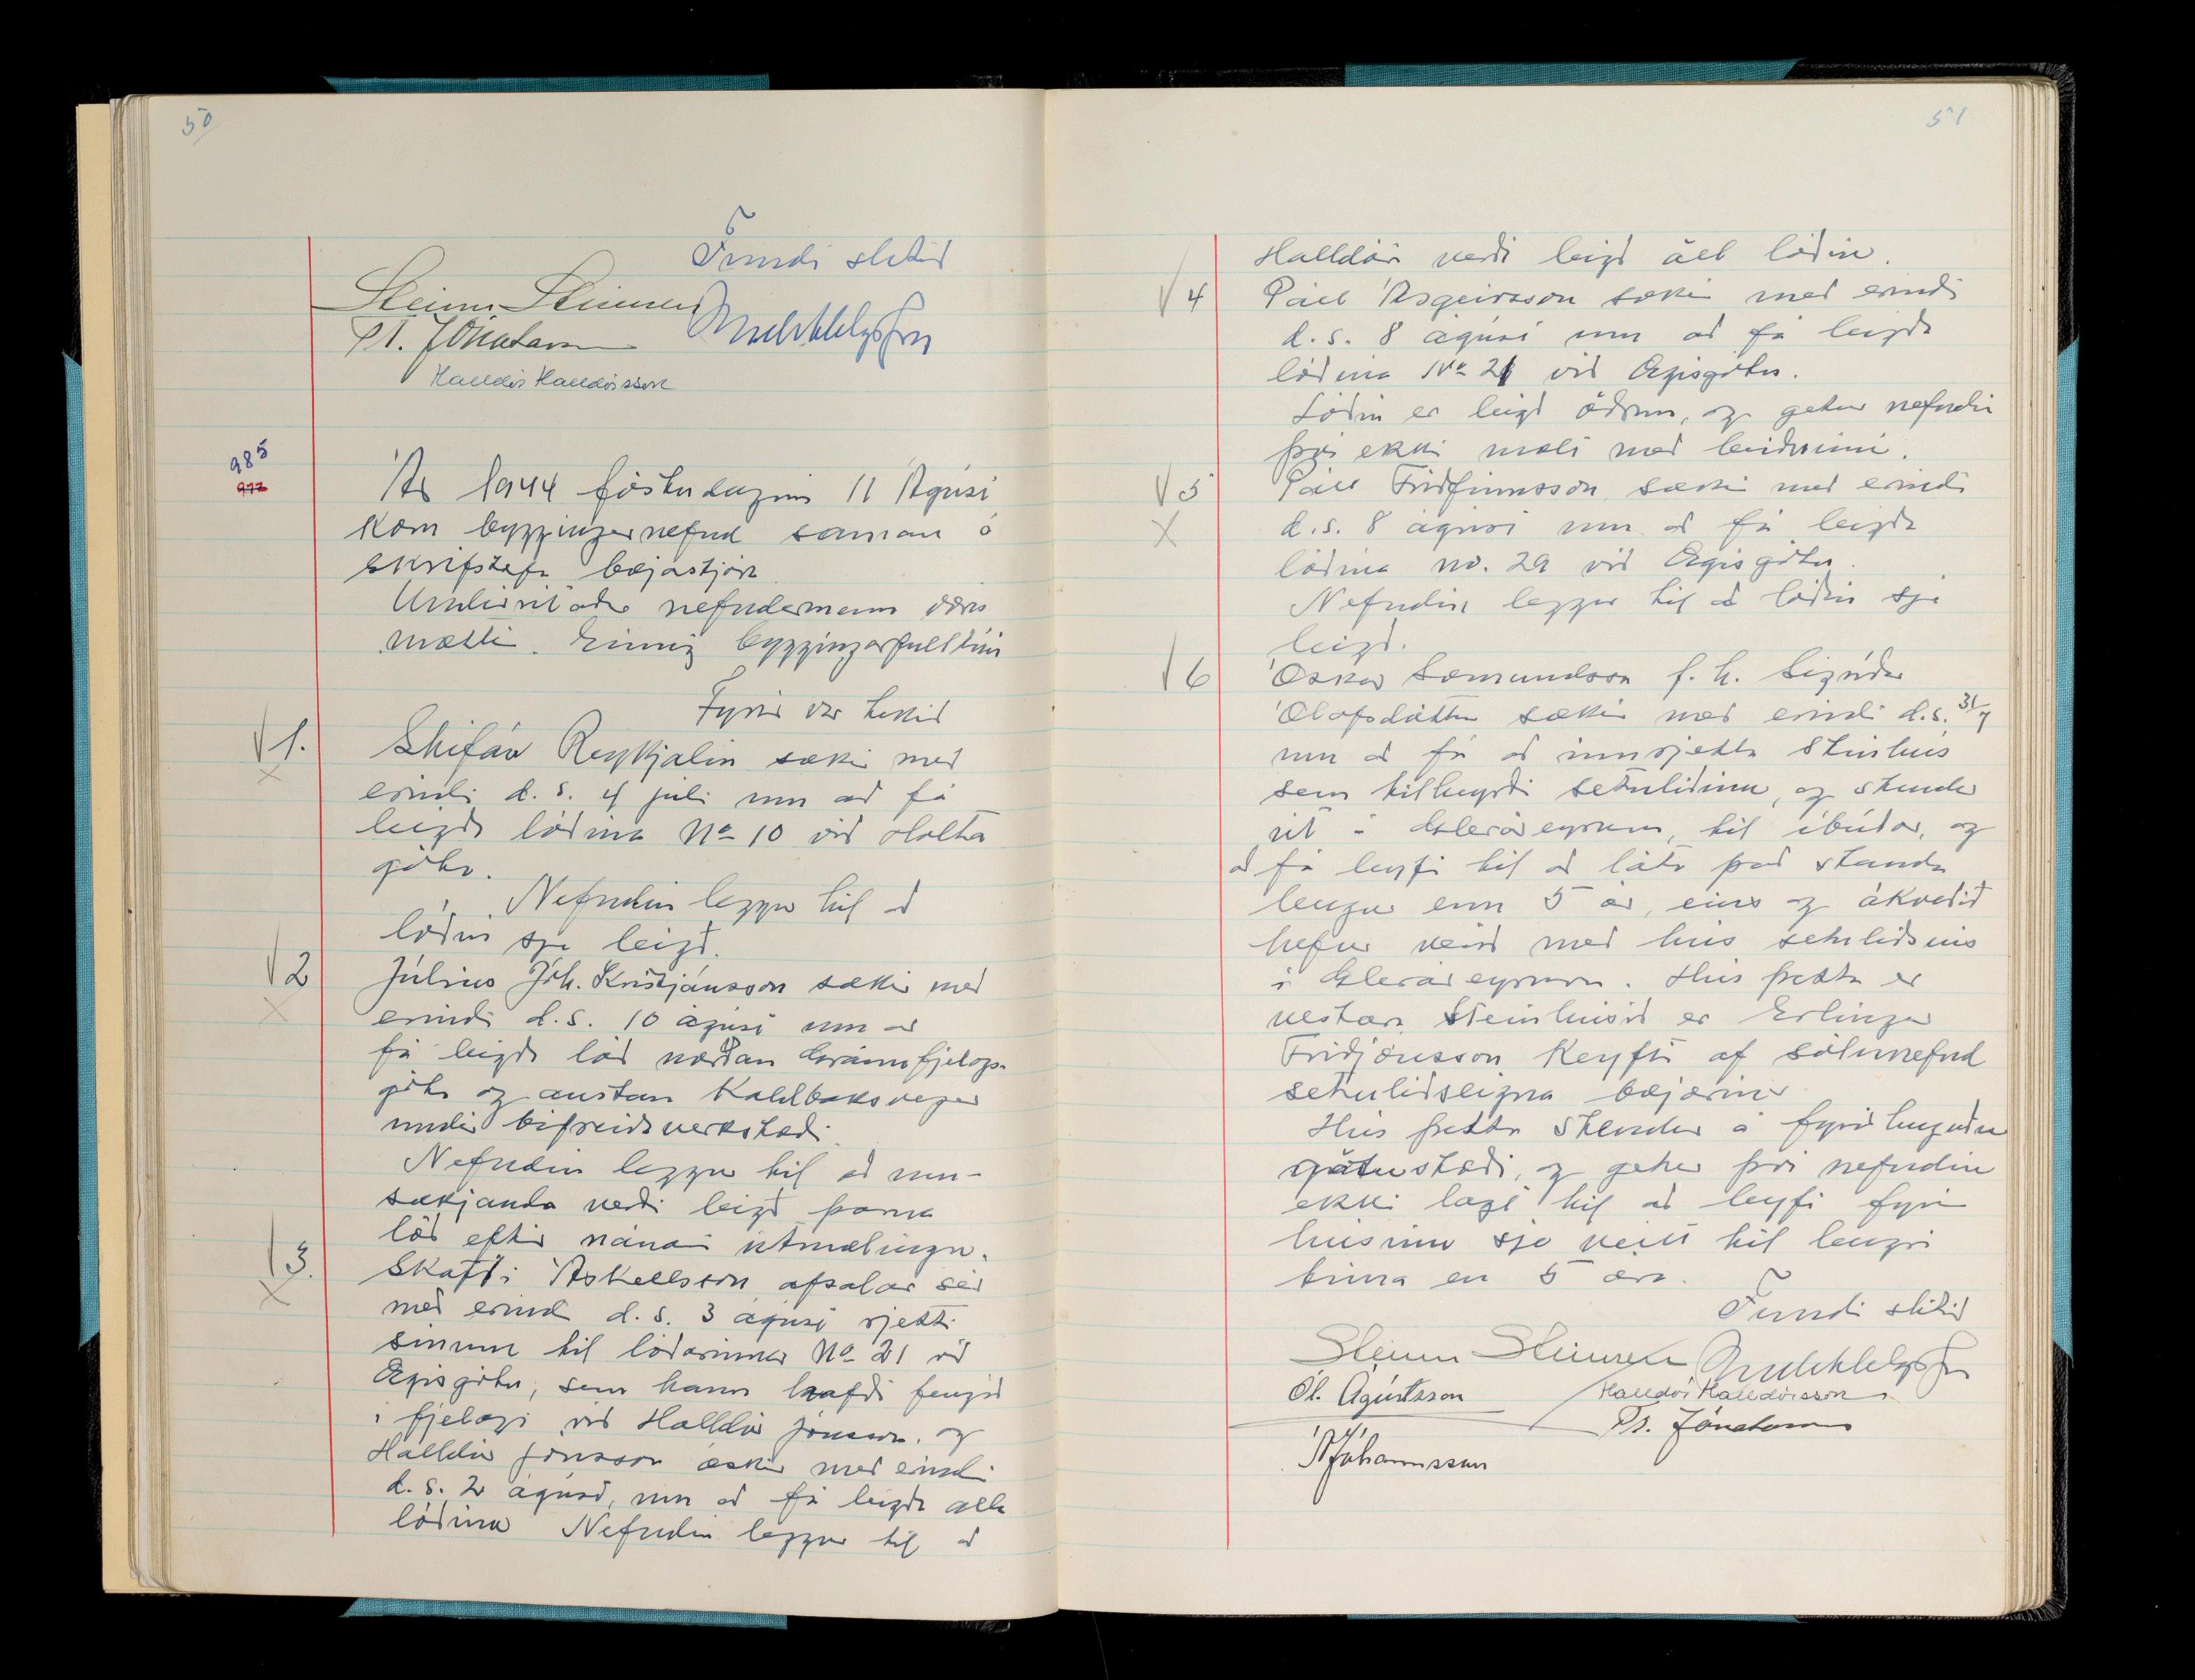 50
Fundi slitið
Steinn Steinsen
Pt. Jónatans
Halldór Halldórsson
985
972
Ár 1944 föstudaginn 11 Ágúst
kom bygginganefnd saman á
skrifstofu bæjarstjóra
Undirritaðir nefndarmenn voru
mættir. Einnig byggingarfulltrúi
Fyrir var tekið
1. Skifár Reykjalín sækir með
erindi d.s. 4 júli um að fá
leigða lóðina No 10 við Holta
götu.
Nefndin leggur til að
lóðin sje leigð.
2 Júlíus Jóh. Kristjánsson sækir með
erindi d.s. 10 ágúst um að
fá leigða lóð norðan Gránufjelags-
götu og austan Kaldbaksvegar
undir bifreiðaverkstæði.
Nefndin leggur til að um-
sækjanda verði leigð þarna
lóð eftir nánari útmælingu.
3. Skafti Áskellsson afsalar sér
með erindi d.s. 3 ágúst rjetti
sínum til lóðarinnar No 21 við
Ægisgötu, sem hann hafði fengið
í fjelagi við Halldór Jónsson, og
Halldór Jónsson æskir með erindi
d.s. 2 ágúst, um að fá leigða alla
lóðina Nefndin leggur til að
51
Halldór verði leigð öll lóðin.
4 Páll Ásgeirsson sækir með erindi
d.s. 8 ágúst um að fá leigða
lóðina No 21 við Ægisgötu.
Lóðin er leigð öðrum, og getur nefndin
því ekki mælt með beiðninni.
5 Páll Friðfinnsson sækir með erindi
d.s. 8 ágúst um að fá leigða
lóðina no. 29 við Ægisgötu.
Nefndin leggur til að lóðin sje
leigð.
6 Óskar Sæmundsson f.h. Sigríðar
Ólafsdóttur sækir með erindi d.s. 31/7
um að fá að innrjetta steinhús
sem tilheyrði setuliðinu, og stendur
út á Gleráreyrum, til íbúðar, og
að fá leyfi til að láta það standa
lengur enn 5 ár, eins og ákveðið
hefur verið með hús setuliðsins
á Gleráreyrum. Hús þetta er
vestara steinhúsið er Erlingur
Friðjónsson keypti af sölunefnd
setuliðseigna bæjarins
Hús þetta stendur á fyrirhuguðu
götustæði, og getur því nefndin
ekki lagt til að leyfi fyrir
húsinu sje veitt til lengri
tíma en 5 ára.
Fundi slitið
Steinn Steinsen
Ól. Ágústsson Halldór Halldórsson
Pt. Jónatans
Jóhannsson